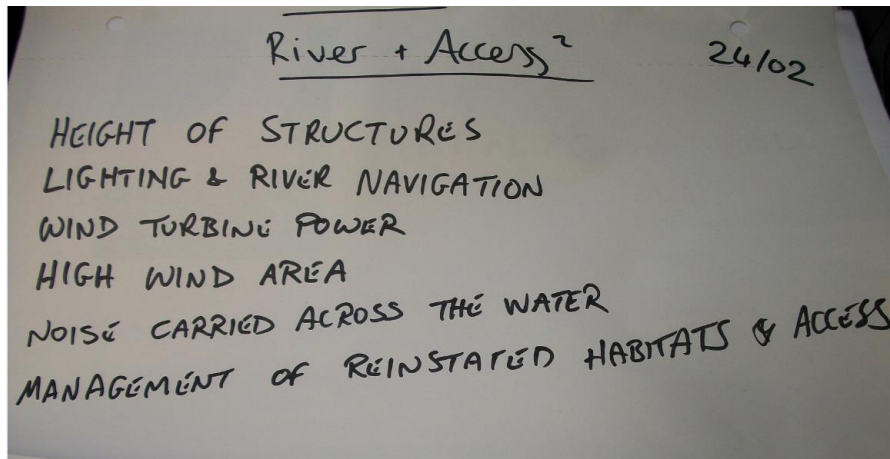 River + Access²
24/02
HEIGHT OF STRUCTURES
LIGHTING & RIVER NAVIGATION
WIND TURBINE POWER
HIGH WIND AREA
NOISE CARRIED ACROSS THE WATER
MANAGEMENT OF REINSTATED HABITATS & ACCESS